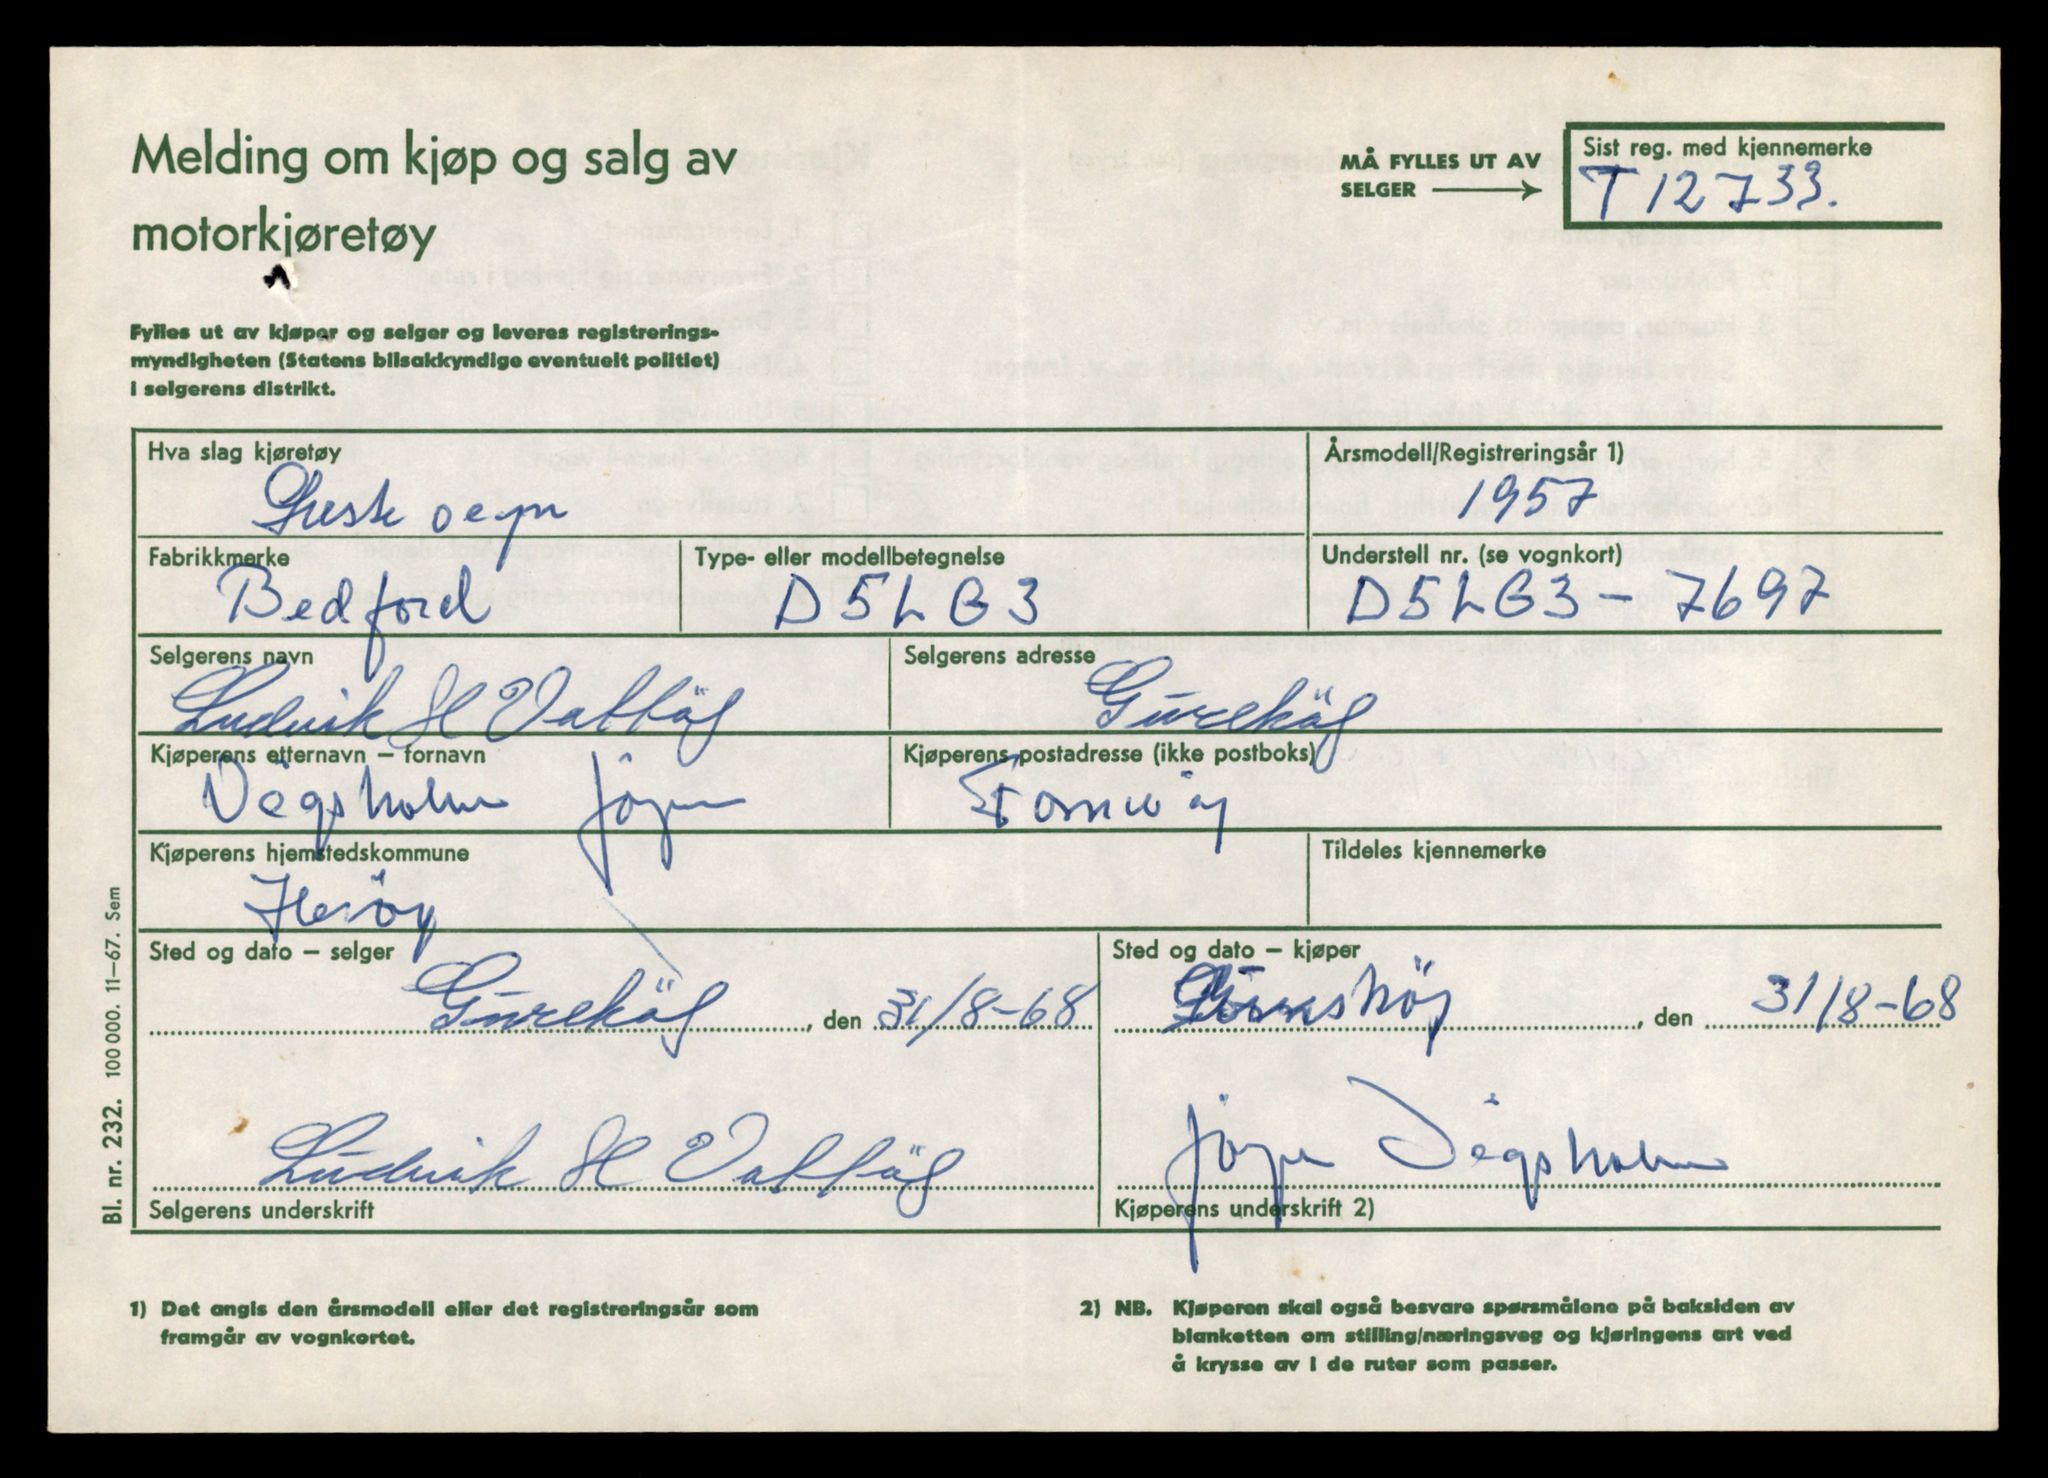 Melding om kjøp og salg av
motorkjøretøy
MÅ FYLLES UT AV
SELGER
Sist reg. med kjennemerke
T 12733.
Fylles ut av kjøper og selger og leveres registrerings-
myndigheten (Statens bilsakkyndige eventuelt politiet)
i selgerens distrikt.
Hva slag kjøretøy
Årsmodell/Registreringsår 1)
1957
Fabrikkmerke
Bedford
Type- eller modellbetegnelse
D5LG3
Understell nr. (se vognkort)
D5LG3-7697
Selgerens navn
Ludvik H
Selgerens adresse
Gurskög
Kjøperens etternavn – fornavn
Vågsholm
Kjøperens postadresse (ikke postboks)
Kjøperens hjemstedskommune
Heröy
Tildeles kjennemerke
Sted og dato – selger
Gurskög, den 31/8-68
Sted og dato – kjøper
Gurskøy, den 31/8-68
Ludvik H
Selgerens underskrift
Vågsholm
Kjøperens underskrift 2)
1) Det angis den årsmodell eller det registreringsår som
framgår av vognkortet.
2) NB. Kjøperen skal også besvare spørsmålene på baksiden av
blanketten om stilling/næringsveg og kjøringens art ved
å krysse av i de ruter som passer.
Bl. nr. 232. 100 000. 11–67. Sem